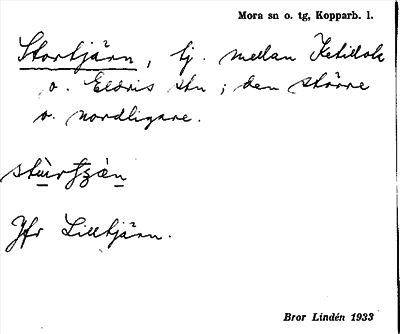 Mora sn o. tg, Kopparb. l.
Stortjärn, tj. mellan
o. Eldris stn; den större
o. nordligare.
Jfr Lilltjärn.
Bror Lindén 1933